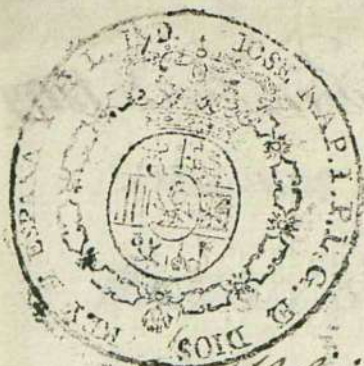 JOSE NAP. I. P. L. G. D DIOS REY D ESPAÑA Y D L. IND.